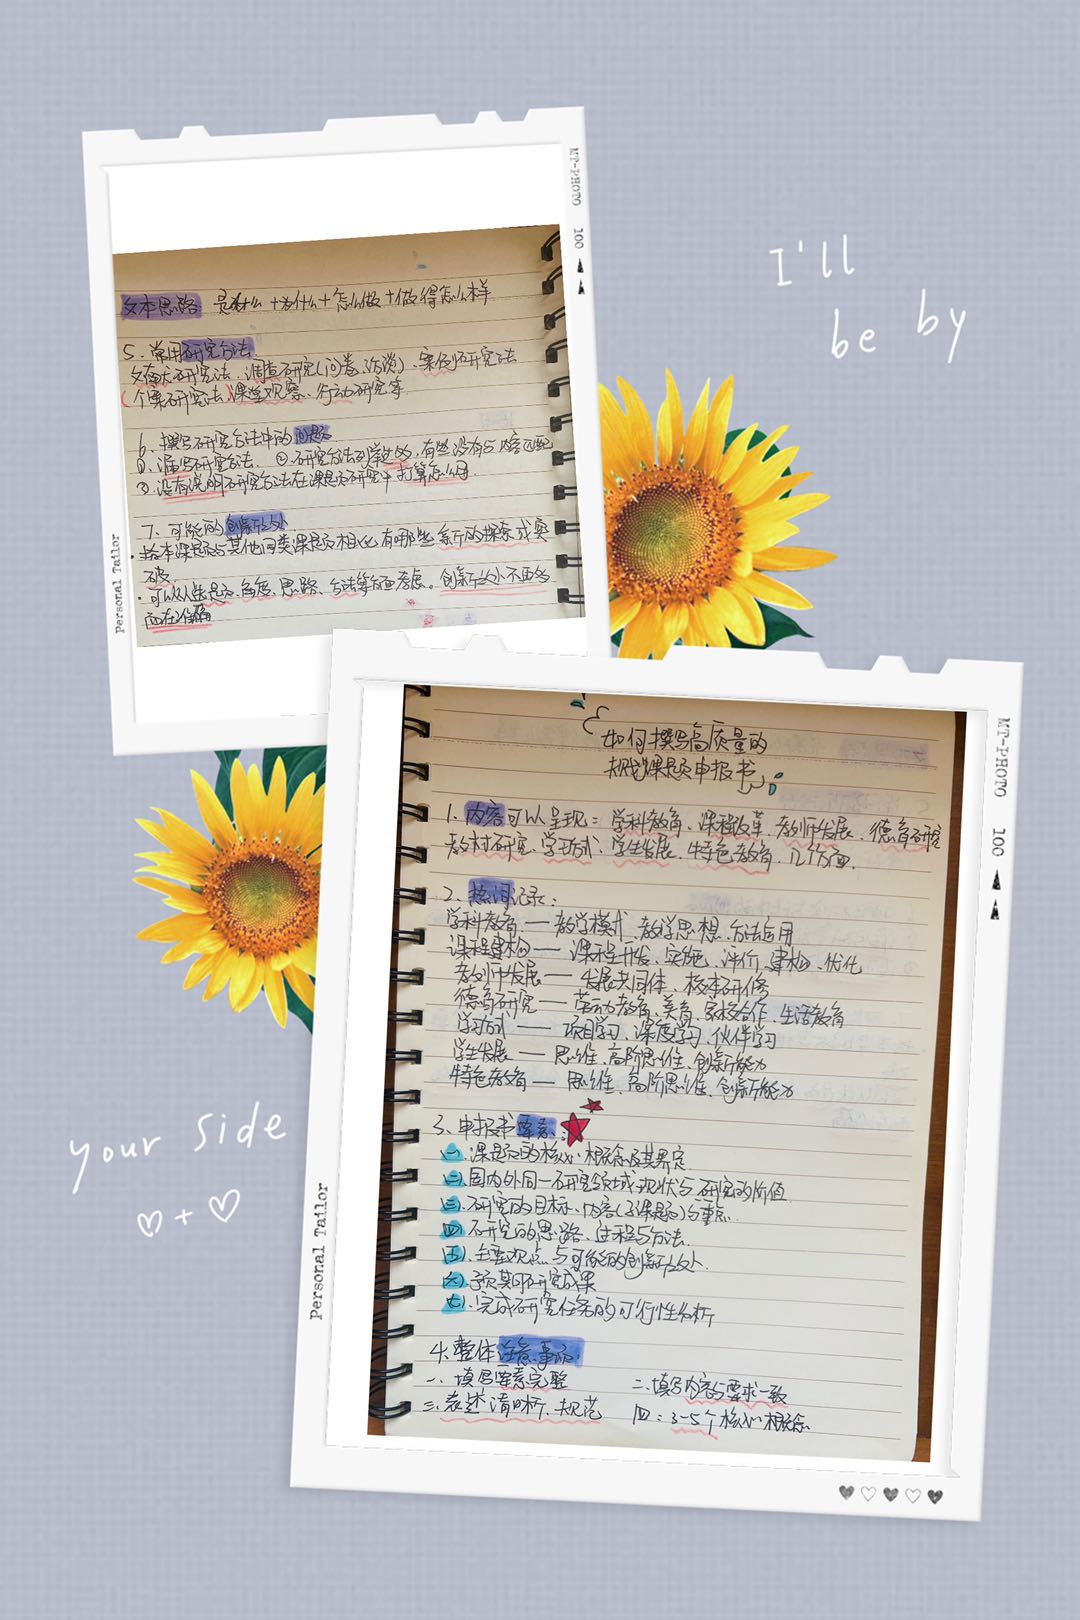 MT-PHOTO 100
I'll
be by
文本思路：是什么+为什么+怎么做+做得怎么样
5、常用研究方法
文献研究法、调查研究(问卷、访谈)、案例研究法
(个案研究法)课堂观察、行动研究等
6、撰写研究方法中的问题
①、漏写研究方法. ②、研究方法列举过多,有些没有与内容匹配
③、没有说明研究方法在课题研究中打算怎么用.
7、可能的创新之处
本课题与其他同类课题相比有哪些新的探索或突
破.
可以从选题、角度、思路、方法等方面考虑。创新之处不在多
而在准确
Personal Tailor
如何撰写高质量的
规划课题申报书
1、内容可以呈现：学科教育、课程改革、教师发展、德育研究
教材研究、学习方式、学生发展、特色教育、几个方面.
2、热词记录：
学科教育——教学模式、教学思想、方法运用
课程建构——课程开发、实施、评价、建构、优化
教师发展——发展共同体、校本研修
德育研究——劳动教育、美育、家校合作、生活教育
学习方式——项目学习、深度学习、伙伴学习
学生发展——思维、高阶思维、创新能力
特色教育——思维、高阶思维、创新能力
3、申报书要素：
(一)、课题的核心概念及其界定
(二)、国内外同一研究领域现状与研究的价值
(三)、研究的目标、内容(子课题)与重点.
(四)、研究的思路、过程与方法.
(五)、主要观点与可能的创新之处.
(六)、预期研究成果
(七)、完成研究任务的可行性分析
4、整体注意事项：
一、填写要素完整 二、填写内容与要求一致
三、表述清晰、规范 四：3-5个核心概念
MT-PHOTO 100
your side
Personal Tailor